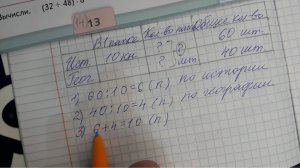 числи. (32 + 48) : 8
13
В 1 пачке Кол-во пачек Общее кол-во
Ист. 10 кн ? 60 шт.
Геог. ? 40 шт.
1) 60:10=6 (п) по истории
2) 40:10=4 (п) по географии
3) 6+4=10 (п)